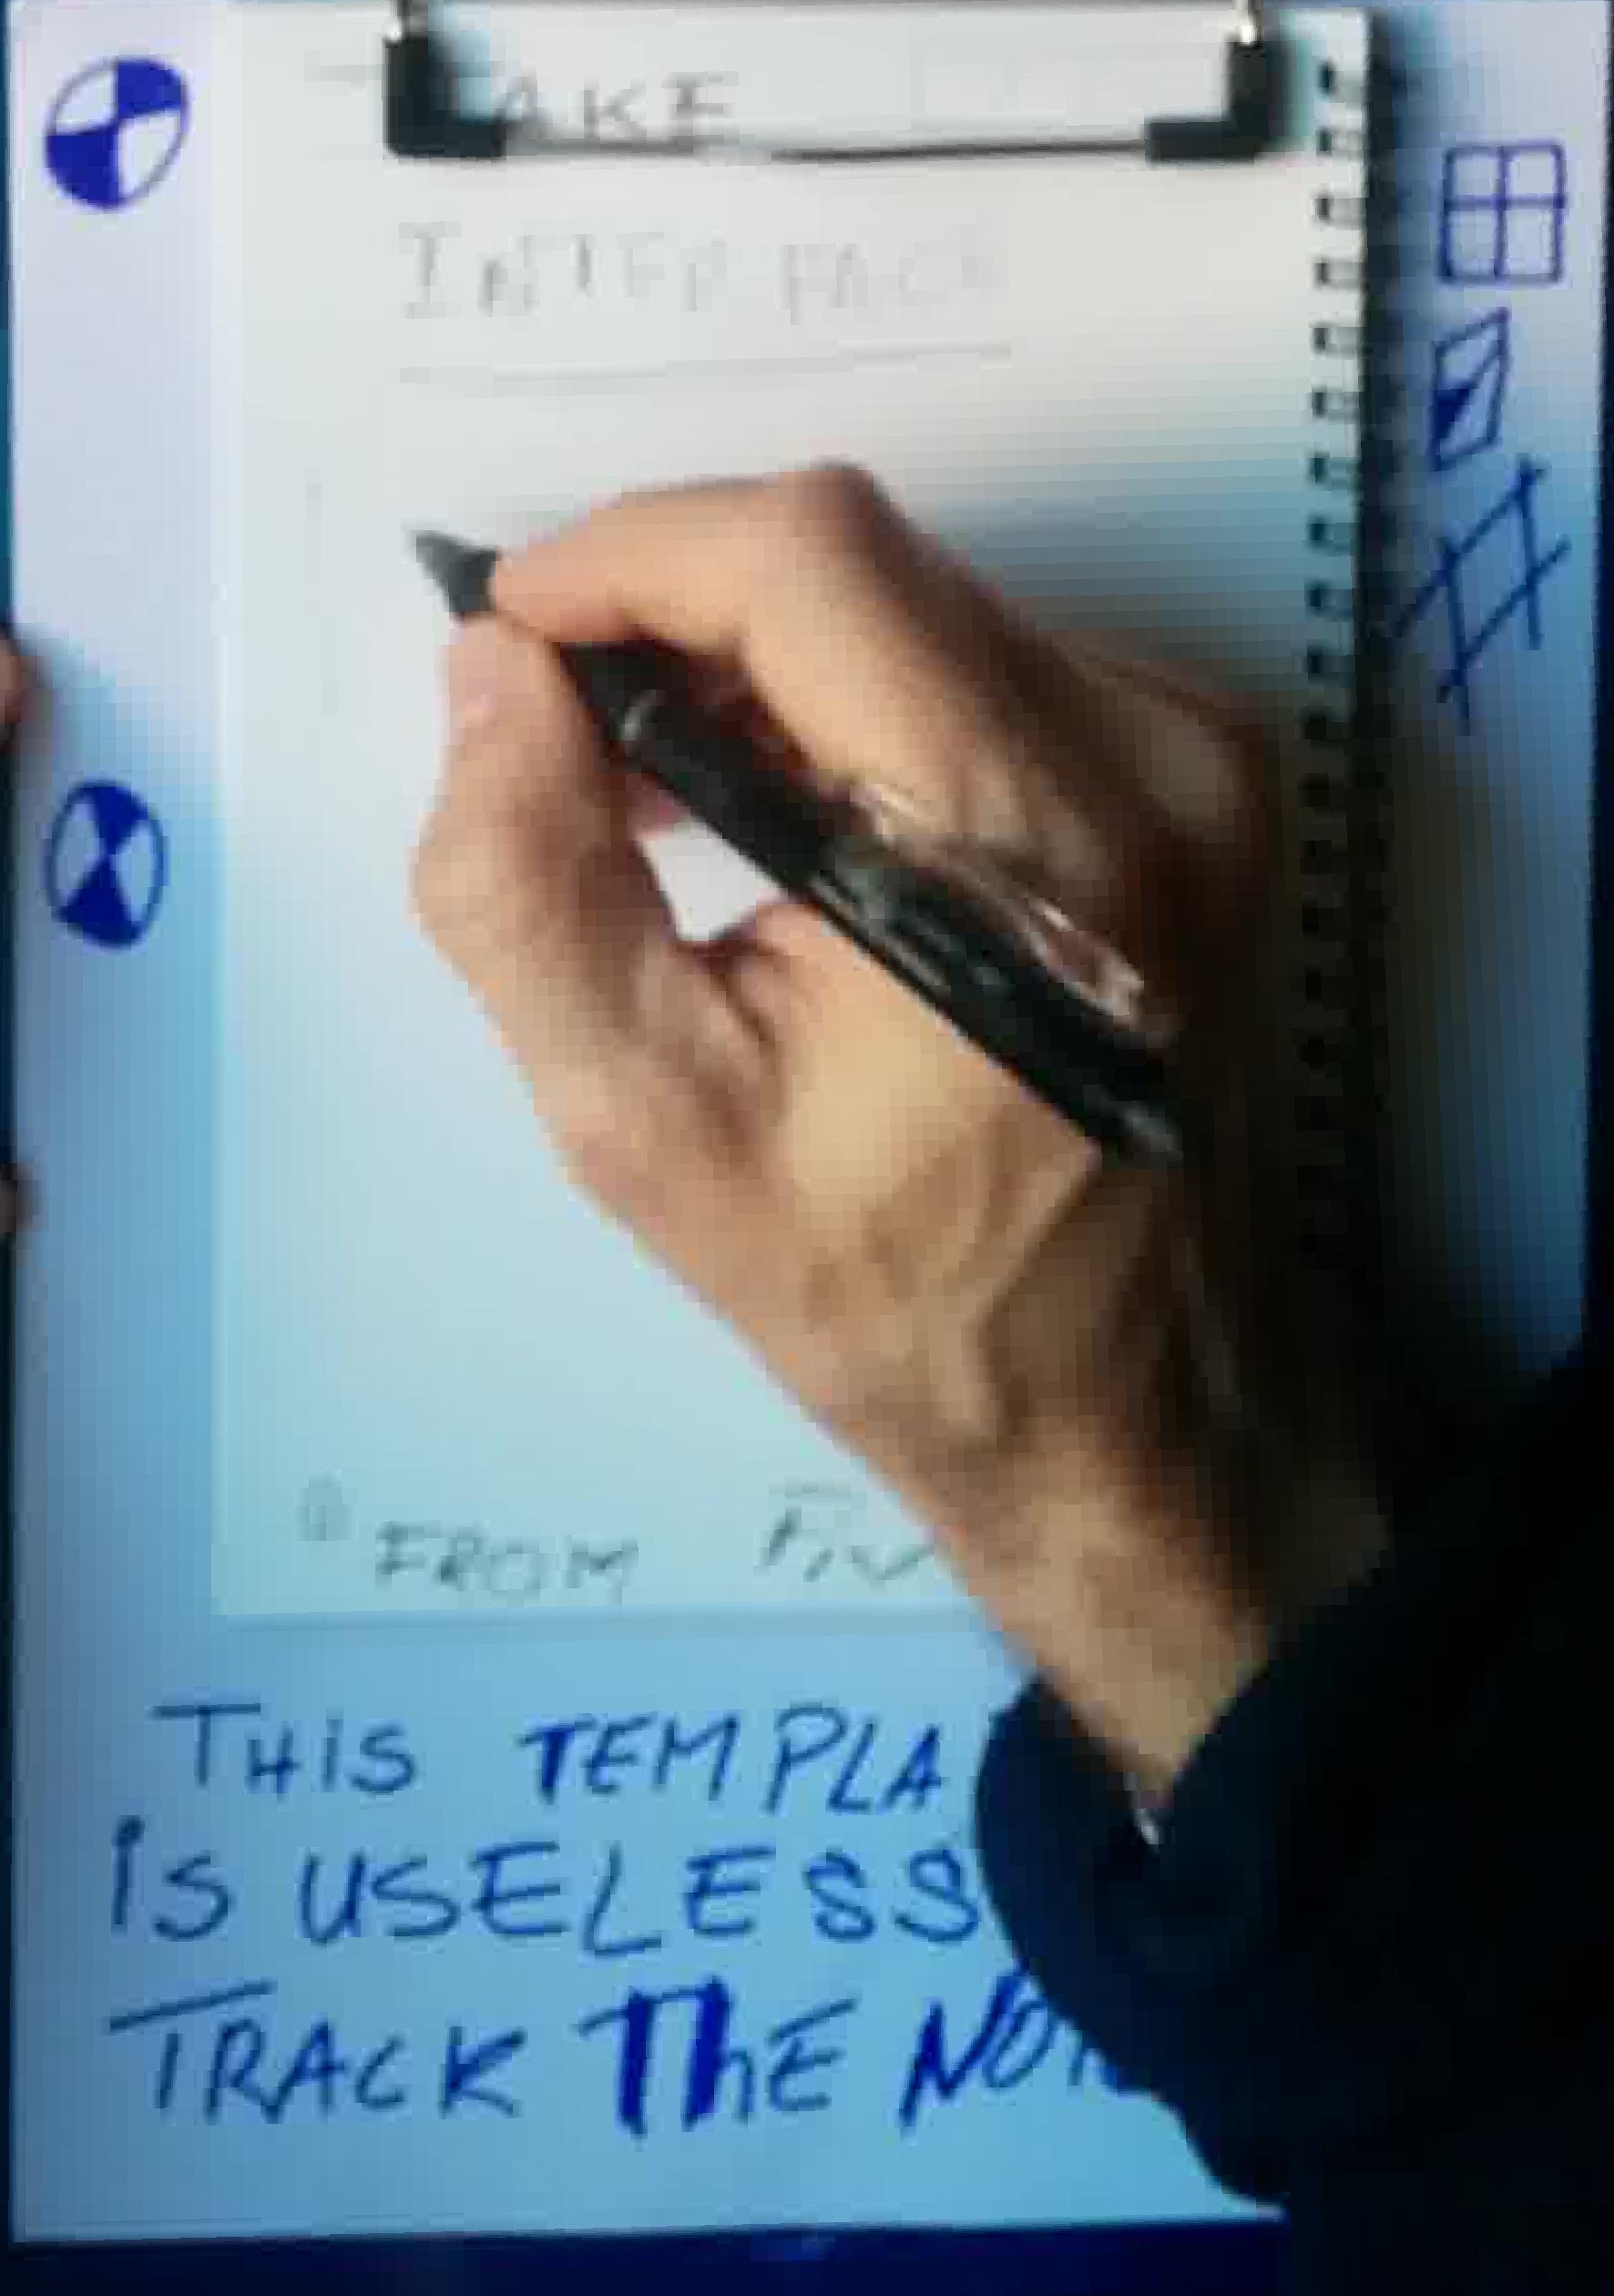 AKE
INTERFACE
FROM
THIS TEMPLA
IS USELESS
TRACK THE